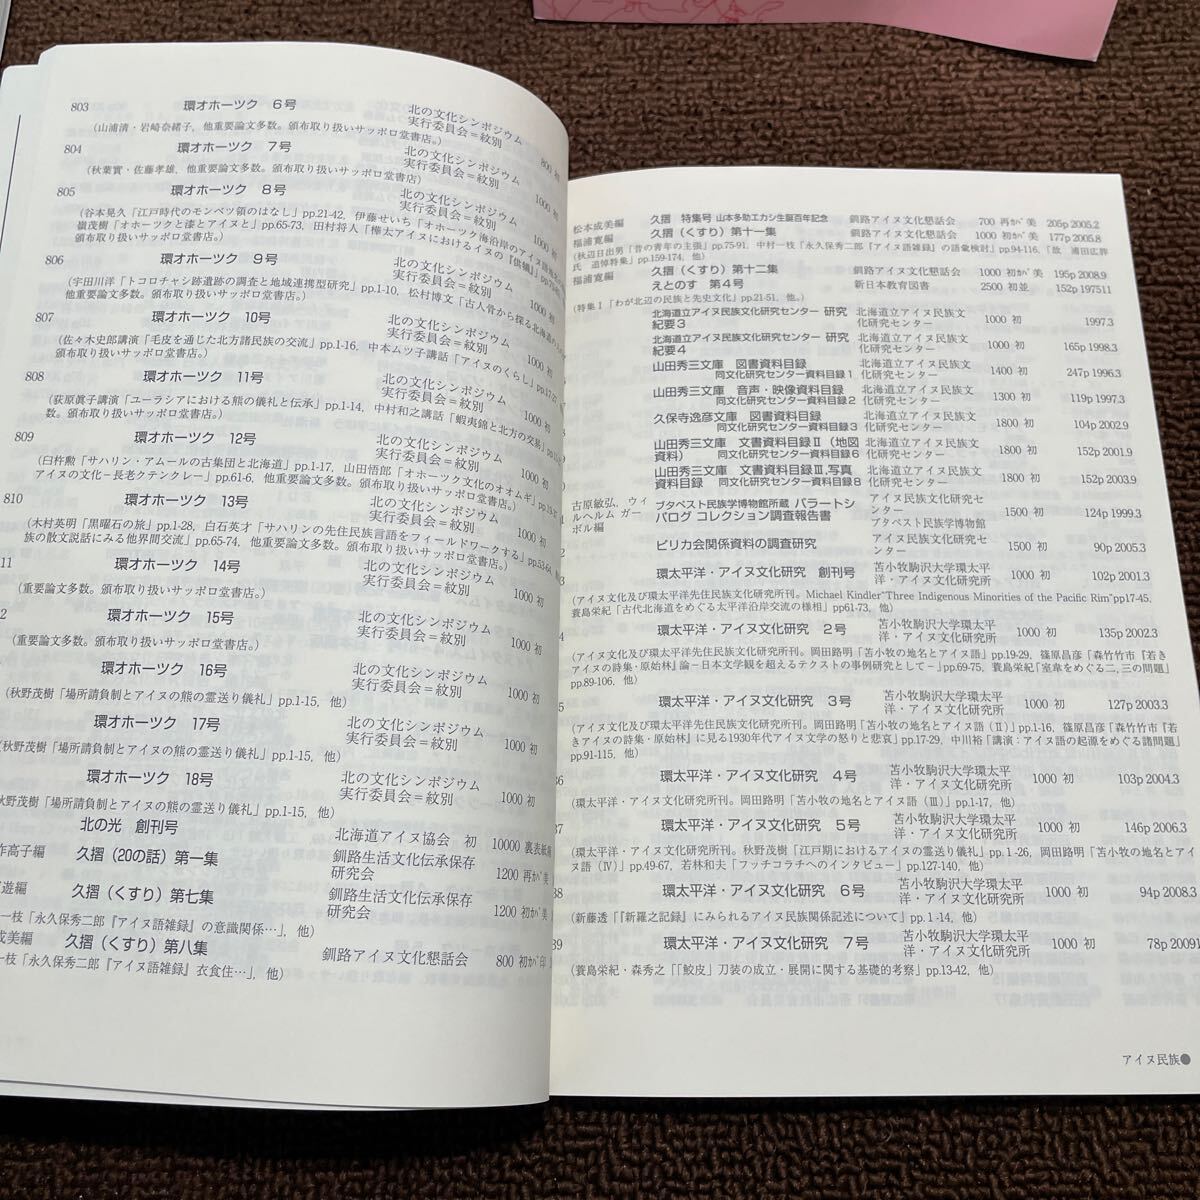 803 環オホーツク 6号 北の文化シンポジウム
実行委員会＝紋別 800 初
（山浦清・岩崎奈緒子，他重要論文多数。頒布取り扱いサッポロ堂書店。）
804 環オホーツク 7号 北の文化シンポジウム
実行委員会＝紋別 1000 初
（秋葉實・佐藤孝雄，他重要論文多数。頒布取り扱いサッポロ堂書店）
805 環オホーツク 8号 北の文化シンポジウム
実行委員会＝紋別 1000 初
（谷本晃久「江戸時代のモンベツ領のはなし」pp.21-42，伊藤せいち「オホーツク海沿岸のアイヌ語地名
嶺茂樹「オホーツクと漆とアイヌと」pp.65-73，田村将人「樺太アイヌにおけるイヌの『供犠』
頒布取り扱いサッポロ堂書店。）
806 環オホーツク 9号 北の文化シンポジウム
実行委員会＝紋別 1000 初
（宇田川洋「トコロチャシ跡遺跡の調査と地域連携型研究」pp.1-10，松村博文「古人骨から探る北海道の
他重要論文多数。頒布取り扱いサッポロ堂書店。）
807 環オホーツク 10号 北の文化シンポジウム
実行委員会＝紋別 1000 初
（佐々木史郎講演「毛皮を通じた北方諸民族の交流」pp.1-16，中本ムツ子講話「アイヌのくらし」pp.17-27
頒布取り扱いサッポロ堂書店。）
808 環オホーツク 11号 北の文化シンポジウム
実行委員会＝紋別 1000 初
（荻原眞子講演「ユーラシアにおける熊の儀礼と伝承」pp.1-14，中村和之講話「蝦夷錦と北方の交易」
数。頒布取り扱いサッポロ堂書店。）
809 環オホーツク 12号 北の文化シンポジウム
実行委員会＝紋別 1000 初
（臼杵勲「サハリン・アムールの古集団と北海道」pp.1-17，山田悟郎「オホーツク文化のオオムギ」
アイヌの文化－長老クテンクレー」pp.61-6，他重要論文多数。頒布取り扱いサッポロ堂書店。）
810 環オホーツク 13号 北の文化シンポジウム
実行委員会＝紋別 1000 初
（木村英明「黒曜石の旅」pp.1-28，白石英才「サハリンの先住民族言語をフィールドワークする」pp.53-64
族の散文説話にみる他界間交流」pp.65-74，他重要論文多数。頒布取り扱いサッポロ堂書店。）
11 環オホーツク 14号 北の文化シンポジウム
実行委員会＝紋別 1000 初
（重要論文多数。頒布取り扱いサッポロ堂書店。）
2 環オホーツク 15号 北の文化シンポジウム
実行委員会＝紋別 1000 初
（重要論文多数。頒布取り扱いサッポロ堂書店。）
環オホーツク 16号 北の文化シンポジウム
実行委員会＝紋別 1000 初
（秋野茂樹「場所請負制とアイヌの熊の霊送り儀礼」pp.1-15，他）
環オホーツク 17号 北の文化シンポジウム
実行委員会＝紋別 1000 初
（秋野茂樹「場所請負制とアイヌの熊の霊送り儀礼」pp.1-15，他）
環オホーツク 18号 北の文化シンポジウム
実行委員会＝紋別 1000 初
秋野茂樹「場所請負制とアイヌの熊の霊送り儀礼」pp.1-15，他）
北の光 創刊号 北海道アイヌ協会 初 10000 裏表紙
作高子編 久摺（20の話）第一集 釧路生活文化伝承保存
研究会 1200 再ｶﾊﾞ 美
遊編 久摺（くすり）第七集 釧路生活文化伝承保存
研究会 1200 初ｶﾊﾞ 美
一枝「永久保秀二郎『アイヌ語雑録』の意識関係…」，他）
成美編 久摺（くすり）第八集 釧路アイヌ文化懇話会 800 初ｶﾊﾞ 印
一枝「永久保秀二郎『アイヌ語雑録』衣食住…」，他）
松本成美編 久摺 特集号 山本多助エカシ生誕百年記念 釧路アイヌ文化懇話会 700 再ｶﾊﾞ 美 205p 2005.2
福浦寛編 久摺（くすり）第十一集 釧路アイヌ文化懇話会 1000 初ｶﾊﾞ 美 177p 2005.8
（秋辺日出男「昔の青年の主張」pp.75-91，中村一枝「永久保秀二郎『アイヌ語雑録』の語彙検討」pp.94-116，「故 浦田広胖
氏 追悼特集」pp.159-174，他）
福浦寛編 久摺（くすり）第十二集 釧路アイヌ文化懇話会 1000 初ｶﾊﾞ 美 195p 2008.9
えとのす 第4号 新日本教育図書 2500 初並 152p 197511
（特集１「わが北辺の民族と先史文化」pp.21-51，他。）
北海道立アイヌ民族文化研究センター 研究 北海道立アイヌ民族文
紀要3 化研究センター 1000 初 1997.3
北海道立アイヌ民族文化研究センター 研究 北海道立アイヌ民族文
紀要4 化研究センター 1000 初 165p 1998.3
山田秀三文庫 図書資料目録 北海道立アイヌ民族文
同文化研究センター資料目録1 化研究センター 1400 初 247p 1996.3
山田秀三文庫 音声・映像資料目録 北海道立アイヌ民族文
同文化研究センター資料目録2 化研究センター 1300 初 119p 1997.3
久保寺逸彦文庫 図書資料目録 北海道立アイヌ民族文
同文化研究センター資料目録3 化研究センター 1800 初 104p 2002.9
山田秀三文庫 文書資料目録Ⅱ（地図 北海道立アイヌ民族文
資料） 同文化研究センター資料目録6 化研究センター 1800 初 152p 2001.9
山田秀三文庫 文書資料目録Ⅲ,写真 北海道立アイヌ民族文
資料目録 同文化研究センター資料目録8 化研究センター 1800 初 152p 2003.9
古原敏弘、ウィ
ルヘルム ガー
ボル編 ブタペスト民族学博物館所蔵 バラートシ
バログ コレクション調査報告書 アイヌ民族文化研究セ
ンター
ブタペスト民族学博物館 1500 初 124p 1999.3
ピリカ会関係資料の調査研究 アイヌ民族文化研究セ
ンター 1500 初 90p 2005.3
環太平洋・アイヌ文化研究 創刊号 苫小牧駒沢大学環太平
洋・アイヌ文化研究所 1000 初 102p 2001.3
（アイヌ文化及び環太平洋先住民族文化研究所刊。Michael Kindler“Three Indigenous Minorities of the Pacific Rim”pp17-45，
蓑島栄紀「古代北海道をめぐる太平洋沿岸交流の様相」pp61-73，他）
環太平洋・アイヌ文化研究 2号 苫小牧駒沢大学環太平
洋・アイヌ文化研究所 1000 初 135p 2002.3
（アイヌ文化及び環太平洋先住民族文化研究所刊。岡田路明「苫小牧の地名とアイヌ語」pp.19-29，篠原昌彦「森竹竹市『若き
アイヌの詩集・原始林』論－日本文学観を超えるテクストの事例研究として－」pp.69-75，蓑島栄紀「室韋をめぐる二，三の問題」
pp.89-106，他）
環太平洋・アイヌ文化研究 3号 苫小牧駒沢大学環太平
洋・アイヌ文化研究所 1000 初 127p 2003.3
（アイヌ文化及び環太平洋先住民族文化研究所刊。岡田路明「苫小牧の地名とアイヌ語（Ⅱ）」pp.1-16，篠原昌彦「森竹竹市『若
きアイヌの詩集・原始林』に見る1930年代アイヌ文学の怒りと悲哀」pp.17-29，中川裕「講演：アイヌ語の起源をめぐる諸問題」
pp.91-115，他）
36 環太平洋・アイヌ文化研究 4号 苫小牧駒沢大学環太平
洋・アイヌ文化研究所 1000 初 103p 2004.3
（環太平洋・アイヌ文化研究所刊。岡田路明「苫小牧の地名とアイヌ語（Ⅲ）」pp.1-17，他）
37 環太平洋・アイヌ文化研究 5号 苫小牧駒沢大学環太平
洋・アイヌ文化研究所 1000 初 146p 2006.3
（環太平洋・アイヌ文化研究所刊。秋野茂樹「江戸期におけるアイヌの霊送り儀礼」pp.1-26，岡田路明「苫小牧の地名とアイ
ヌ語（Ⅳ）」pp.49-67，若林和夫「フッチコラチへのインタビュー」pp.127-140，他）
38 環太平洋・アイヌ文化研究 6号 苫小牧駒沢大学環太平
洋・アイヌ文化研究所 1000 初 94p 2008.3
（新藤透「『新羅之記録』にみられるアイヌ民族関係記述について」pp.1-14，他）
39 環太平洋・アイヌ文化研究 7号 苫小牧駒沢大学環太平
洋・アイヌ文化研究所 1000 初 78p 20091
（蓑島栄紀・森秀之「「鮫皮」刀装の成立・展開に関する基礎的考察」pp.13-42，他）
アイヌ民族●